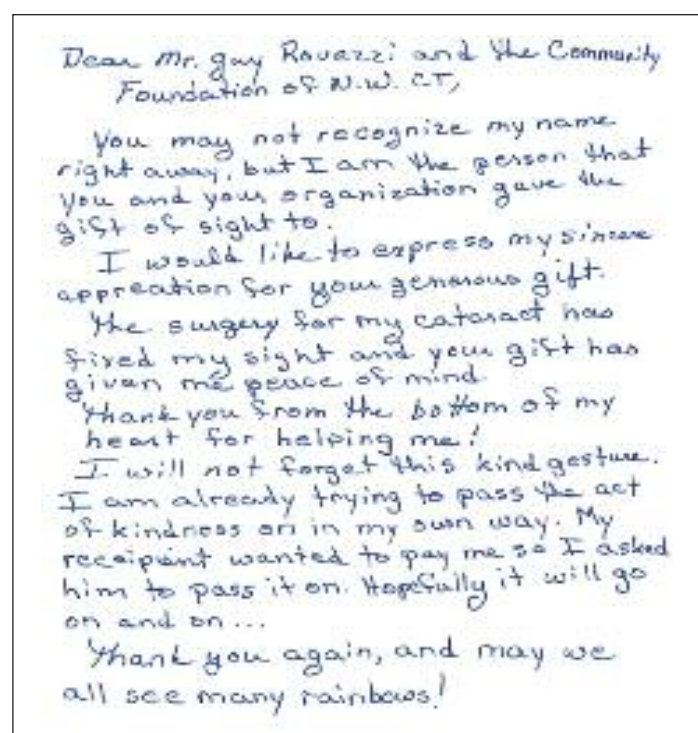 Dear Mr. Guy Rovazzi and the Community
Foundation of N.W. CT,
You may not recognize my name
right away, but I am the person that
you and your organization gave the
gift of sight to.
I would like to express my sincere
appreation for your generous gift.
The surgery for my cataract has
fixed my sight and your gift has
given me peace of mind
Thank you from the bottom of my
heart for helping me!
I will not forget this kind gesture.
I am already trying to pass the act
of kindness on in my own way. My
receipient wanted to pay me so I asked
him to pass it on. Hopefully it will go
on and on...
Thank you again, and may we
all see many rainbows!